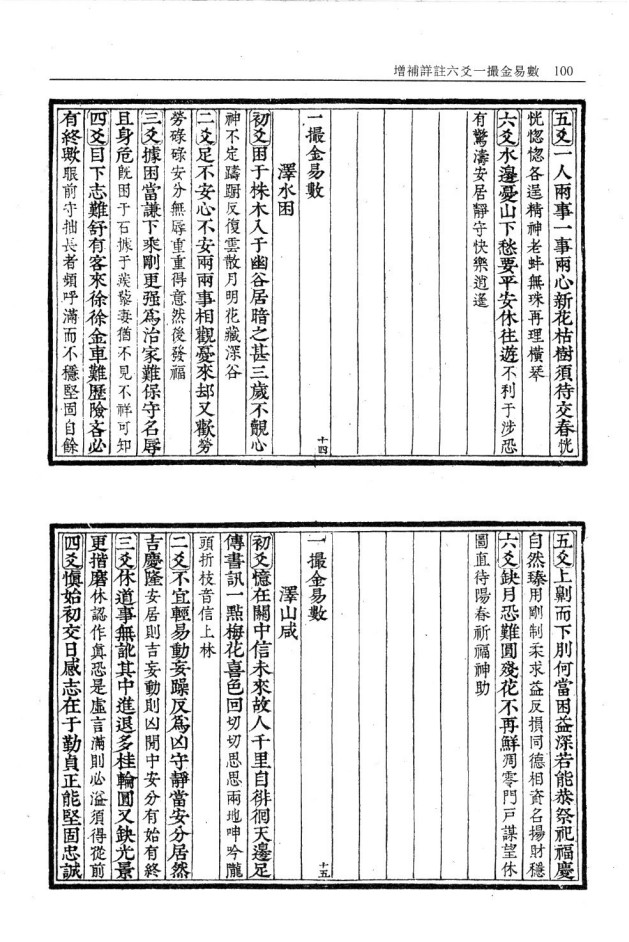 增補詳註六爻一撮金易數 100
五爻一人兩事一事兩心新花枯樹須待交春恍
恍惚惚各逞精神老蚌無珠再理橫琴
六爻水邊憂山下愁要平安休往遊不利于涉恐
有驚濤安居靜守快樂逍遙
一撮金易數
十四
澤水困
初爻困于株木入于幽谷居暗之甚三歲不覿心
神不定躊躇反復雲散月明花藏深谷
二爻足不安心不安兩兩事相觀憂來却又歡勞
勞碌碌安分無辱重重得意然後發福
三爻據困當謙下乘剛更强爲治家難保守名辱
且身危既困于石據于蒺藜妻猶不見不祥可知
四爻目下志難舒有客來徐徐金車難歷險吝必
有終歟眼前守拙長者頻呼滿而不穩堅固自餘
五爻上劓而下刖何當困益深若能恭祭祀福慶
自然臻用剛制柔求益反損同德相資名揚財穩
六爻缺月恐難圓殘花不再鮮凋零門戶謀望休
圖直待陽春祈福神助
一撮金易數
十五
澤山咸
初爻憶在關中信未來故人千里自徘徊天邊足
傳書訊一點梅花喜色回切切思思兩地呻吟隴
頭折枝音信上林
二爻不宜輕易動妄躁反爲凶守靜當安分居然
吉慶隆安居則吉妄動則凶閑中安分有始有終
三爻休道事無訛其中進退多桂輪圓又缺光景
更揩磨休認作眞恐是虛言滿則必溢須得從前
四爻愼始初交日感志在于勤貞正能堅固忠誠